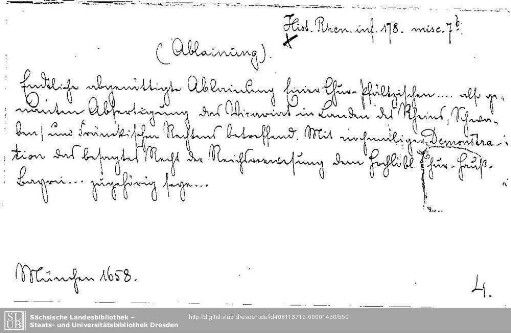 Hist. Rhen. inf. 178. misc. 7b.
(Ablainung).
Endliche abgenöttigte Ableinung einer Chur-Pfältzischen .... also ge-
nanten Abfertigung des Vicariats in Landen des Rheins, Schwa-
ben, und Fränkischen Rechtens betreffend. Mit Demonstra-
tion des besagtes Recht der Reichsverwesung dem Hochlöbl. Chur-Hauß
Bayrn ... zugehörig seye...
München 1658.
4.
Sächsische Landesbibliothek –
Staats- und Universitätsbibliothek Dresden